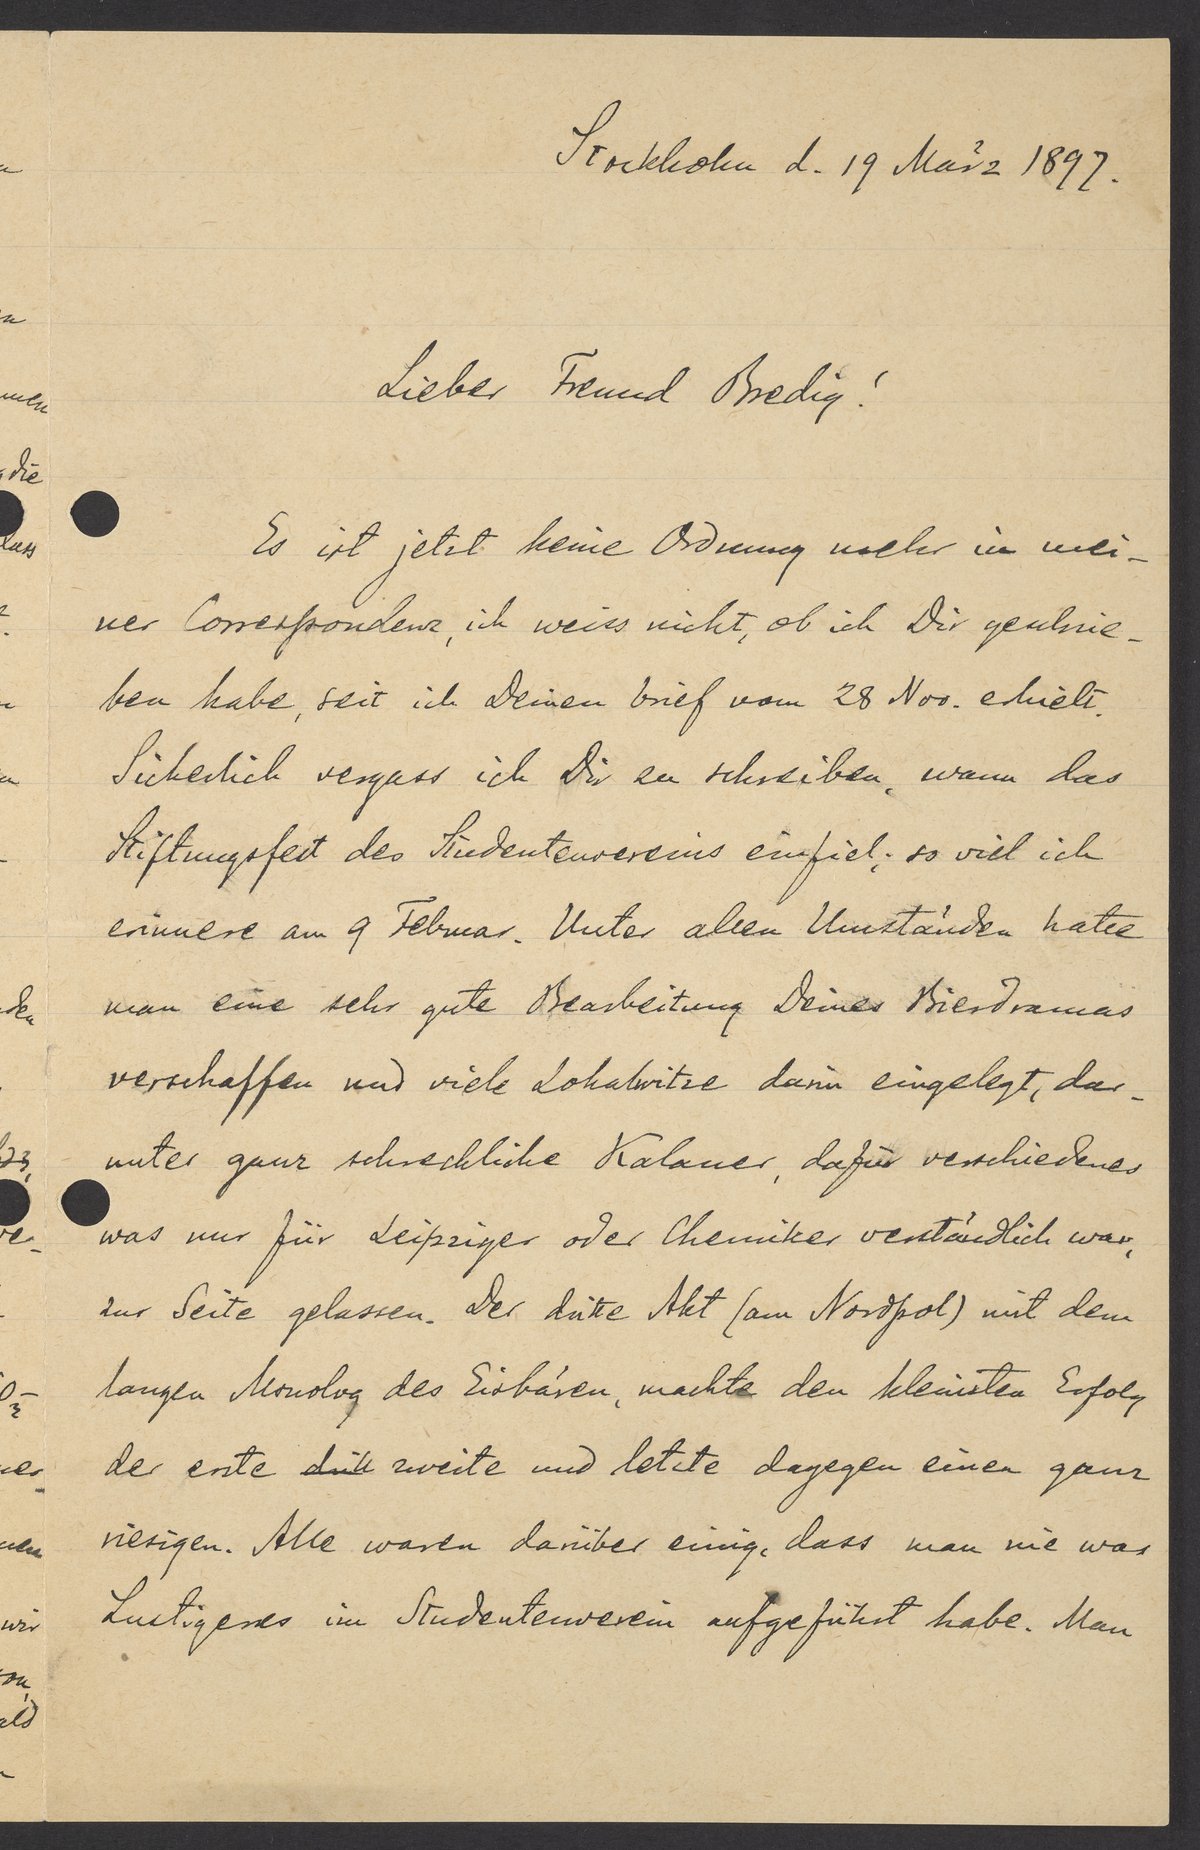 Stockholm d. 19 März 1897.
Lieber Freund Bredig!
Es ist jetzt keine Ordnung mehr in mei-
ner Correspondenz, ich weiss nicht, ob ich Dir geschrie-
ben habe, seit ich Deinen brief vom 28 Nov. erhielt.
Sicherlich vergass ich Dir zu schreiben, wann das
Stiftungsfest des Studentenvereins einfiel; so viel ich
erinnere am 9 Februar. Unter allen Umständen hatte
man eine sehr gute Bearbeitung Deines Bierdramas
verschaffen und viele Lokalwitze darin eingelegt, dar-
unter ganz schreckliche Kalauer, dafür verschiedenes
was nur für Leipziger oder Chemiker verständlich war,
zur Seite gelassen. Der dritte Akt (am Nordpol) mit dem
langen Monolog des Eisbären, machte den kleinsten Erfolg
der erste dritt zweite und letzte dagegen einen ganz
riesigen. Alle waren darüber einig, dass man nie was
Lustigeres im Studentenverein aufgeführt habe. Man
die